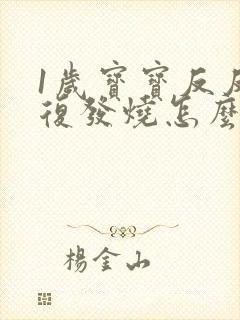 1歲寶寶反反
復發燒怎麼
楊金山